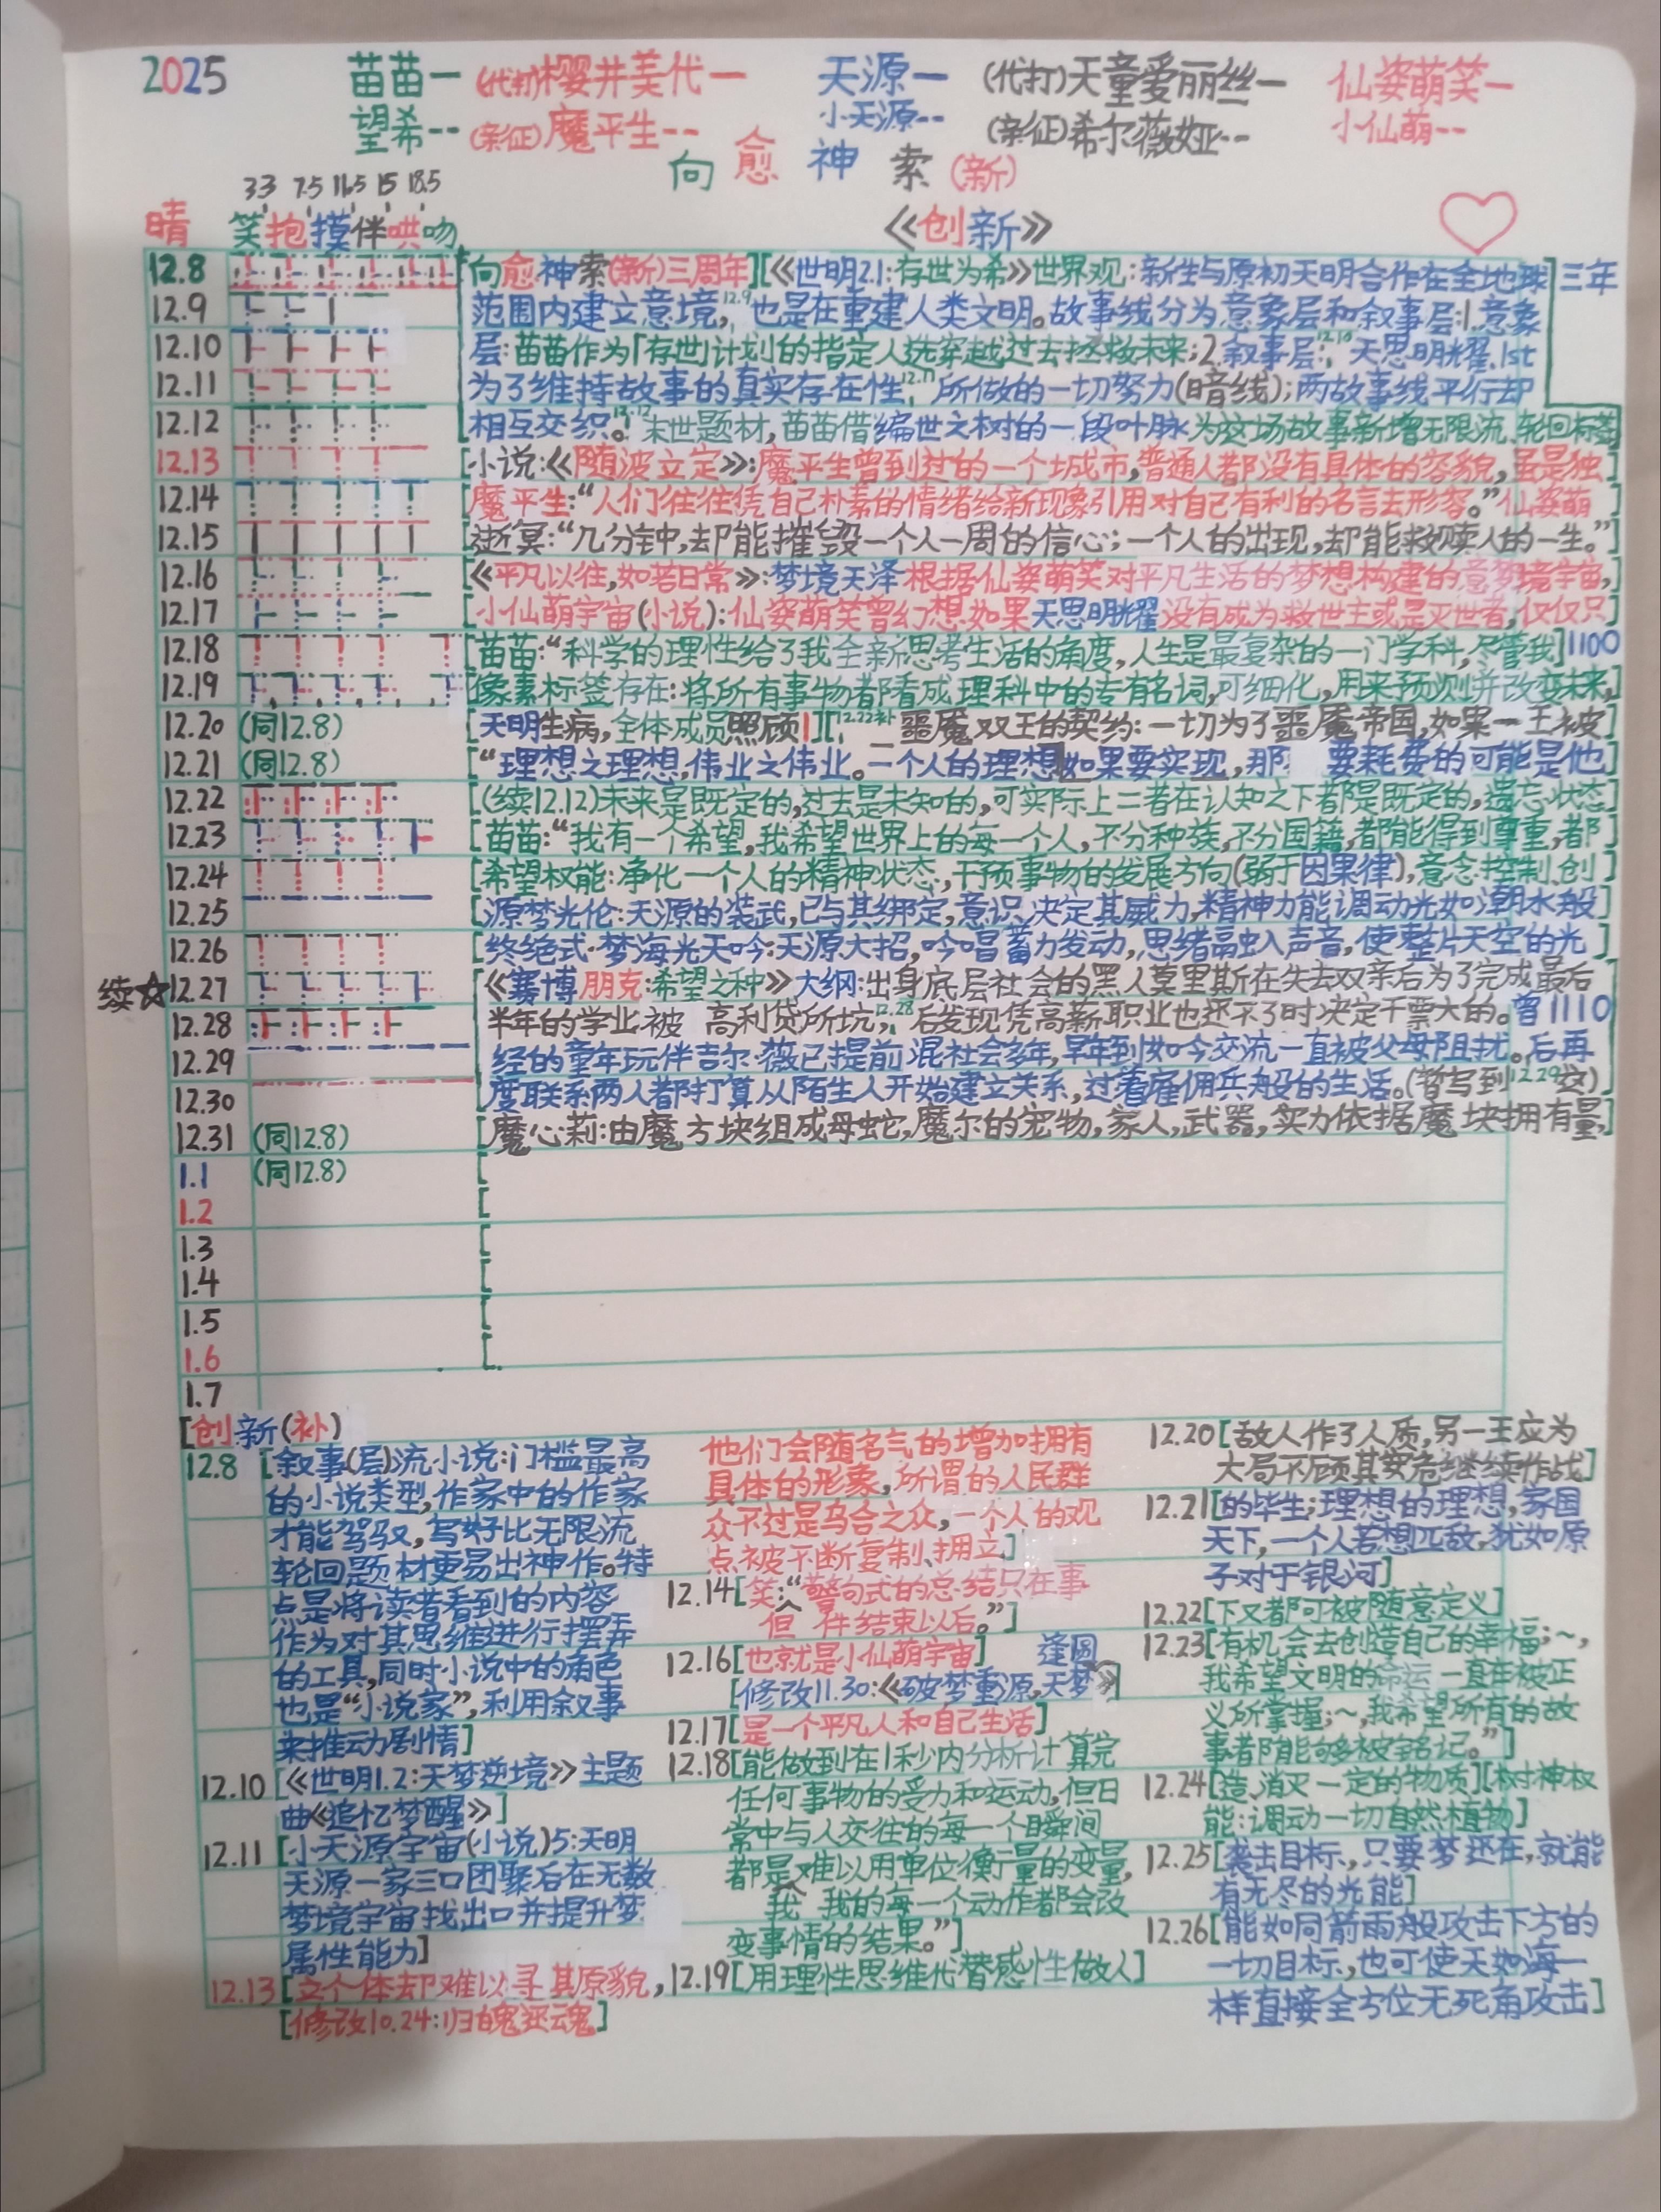 2025 苗苗— (代打)樱井美代— 天源— (代打)天童爱丽丝— 仙姿萌笑—
望希-- (亲征)魔平生-- 小天源-- (亲征)希尔薇娅-- 小仙萌--
向愈神索(新)
3.3 7.5 11.5 15 18.5
晴 笑抱摸伴哄吻 《创新》
12.8 [向愈神索(新)三周年][《世明2.1:存世为希》世界观:新生与原初天明合作在全地球] 三年
12.9 范围内建立意境,12.9也是在重建人类文明。故事线分为意象层和叙事层:1.意象
12.10 层:苗苗作为「存世」计划的指定人选穿越过去拯救未来;2.叙事层:12.10天思明耀.1st
12.11 为了维持故事的真实存在性,12.11所做的一切努力(暗线);两故事线平行却
12.12 相互交织。12.12末世题材,苗苗借编世之树的一段叶脉为这场故事新增无限流、轮回标签
12.13 [小说:《随波立定》:魔平生曾到过的一个城市,普通人都没有具体的容貌,虽是独]
12.14 魔平生:“人们往往凭自己朴素的情绪给新现象引用对自己有利的名言去形容。”仙姿萌]
12.15 逝冥:“几分钟,却能摧毁一个人一周的信心;一个人的出现,却能救赎人的一生。”]
12.16 [《平凡以往,如若日常》:梦境天泽根据仙姿萌笑对平凡生活的梦想构建的意梦境宇宙,]
12.17 [小仙萌宇宙(小说):仙姿萌笑曾幻想如果天思明耀没有成为救世主或是灭世者,仅仅只]
12.18 [苗苗:“科学的理性给了我全新思考生活的角度,人生是最复杂的一门学科,尽管我] 1100
12.19 [像素标签存在:将所有事物都看成理科中的专有名词,可细化,用来预测并改变未来,]
12.20 (同12.8) [天明生病,全体成员照顾1][12.22补 噩魔双王的契约:一切为了噩魔帝国,如果一王被]
12.21 (同12.8) [“理想之理想,伟业之伟业。一个人的理想如果要实现,那 要耗费的可能是他]
12.22 [(续12.12)未来是既定的,过去是未知的,可实际上二者在认知之下都是既定的,遗忘状态]
12.23 [苗苗:“我有一个希望,我希望世界上的每一个人,不分种族,不分国籍,都能得到尊重,都]
12.24 [希望权能:净化一个人的精神状态,干预事物的发展方向(弱于因果律),意念控制、创]
12.25 [源梦光伦:天源的装武,已与其绑定,意识决定其威力,精神力能调动光如潮水般]
12.26 [终绝式·梦海光天吟:天源大招,吟唱蓄力发动,思绪融入声音,使整片天空的光]
续☆12.27 [《赛博朋克:希望之种》大纲:出身底层社会的黑人莫里斯在失去双亲后为了完成最后
12.28 半年的学业被 高利贷所坑,12.28后发现凭高薪职业也还不了时决定干票大的。曾 1110
12.29 经的童年玩伴吉尔·薇已提前混社会多年,早年到如今交流一直被父母阻扰。后再
12.30 度联系两人都打算从陌生人开始建立关系,过着雇佣兵般的生活。(暂写到12.29这)]
12.31 (同12.8) [魔心莉:由魔方块组成母蛇,魔尔的宠物,家人,武器,实力依据魔块拥有量,]
1.1 (同12.8) [
1.2 [
1.3 [
1.4 [
1.5 [
1.6 [
1.7
[创新(补)
12.8 [叙事(层)流小说:门槛最高
的小说类型,作家中的作家
才能驾驭,写好比无限流
轮回题材更易出神作。特
点是将读者看到的内容
作为对其思维进行摆弄
的工具,同时小说中的角色
也是“小说家”,利用叙事
来推动剧情]
12.10 [《世明1.2:天梦逆境》主题
曲《追忆梦醒》]
12.11 [小天源宇宙(小说)5:天明
天源一家三口团聚后在无数
梦境宇宙找出口并提升梦
属性能力]
12.13 [立个体却难以寻其原貌,
[修改10.24:归魄还魂]
他们会随名气的增加拥有
具体的形象,所谓的人民群
众不过是乌合之众,一个人的观
点被不断复制、拥立]
12.14 [笑:“警句式的总结只在事
但 件结束以后。”]
12.16 [也就是小仙萌宇宙] 逢圆
[修改11.30:《破梦重源,天梦》]
12.17 [是一个平凡人和自己生活]
12.18 [能做到在1秒内分析计算完
任何事物的受力和运动,但日
常中与人交往的每一个瞬间
都是难以用单位衡量的变量,
我 我的每一个动作都会改
变事情的结果。”]
12.19 [用理性思维代替感性做人]
12.20 [敌人作了人质,另一王应为
大局不顾其安危继续作战]
12.21 [的毕生;理想的理想,家国
天下,一个人若想匹敌,犹如原
子对于银河]
12.22 [下又都可被随意定义]
12.23 [有机会去创造自己的幸福;~,
我希望文明的命运一直在被正
义所掌握;~,我希望所有的故
事都能够被铭记。”]
12.24 [造、消灭一定的物质][树神权
能:调动一切自然植物]
12.25 [袭击目标,只要梦还在,就能
有无尽的光能]
12.26 [能如同箭雨般攻击下方的
一切目标,也可使天如海一
样直接全方位无死角攻击]